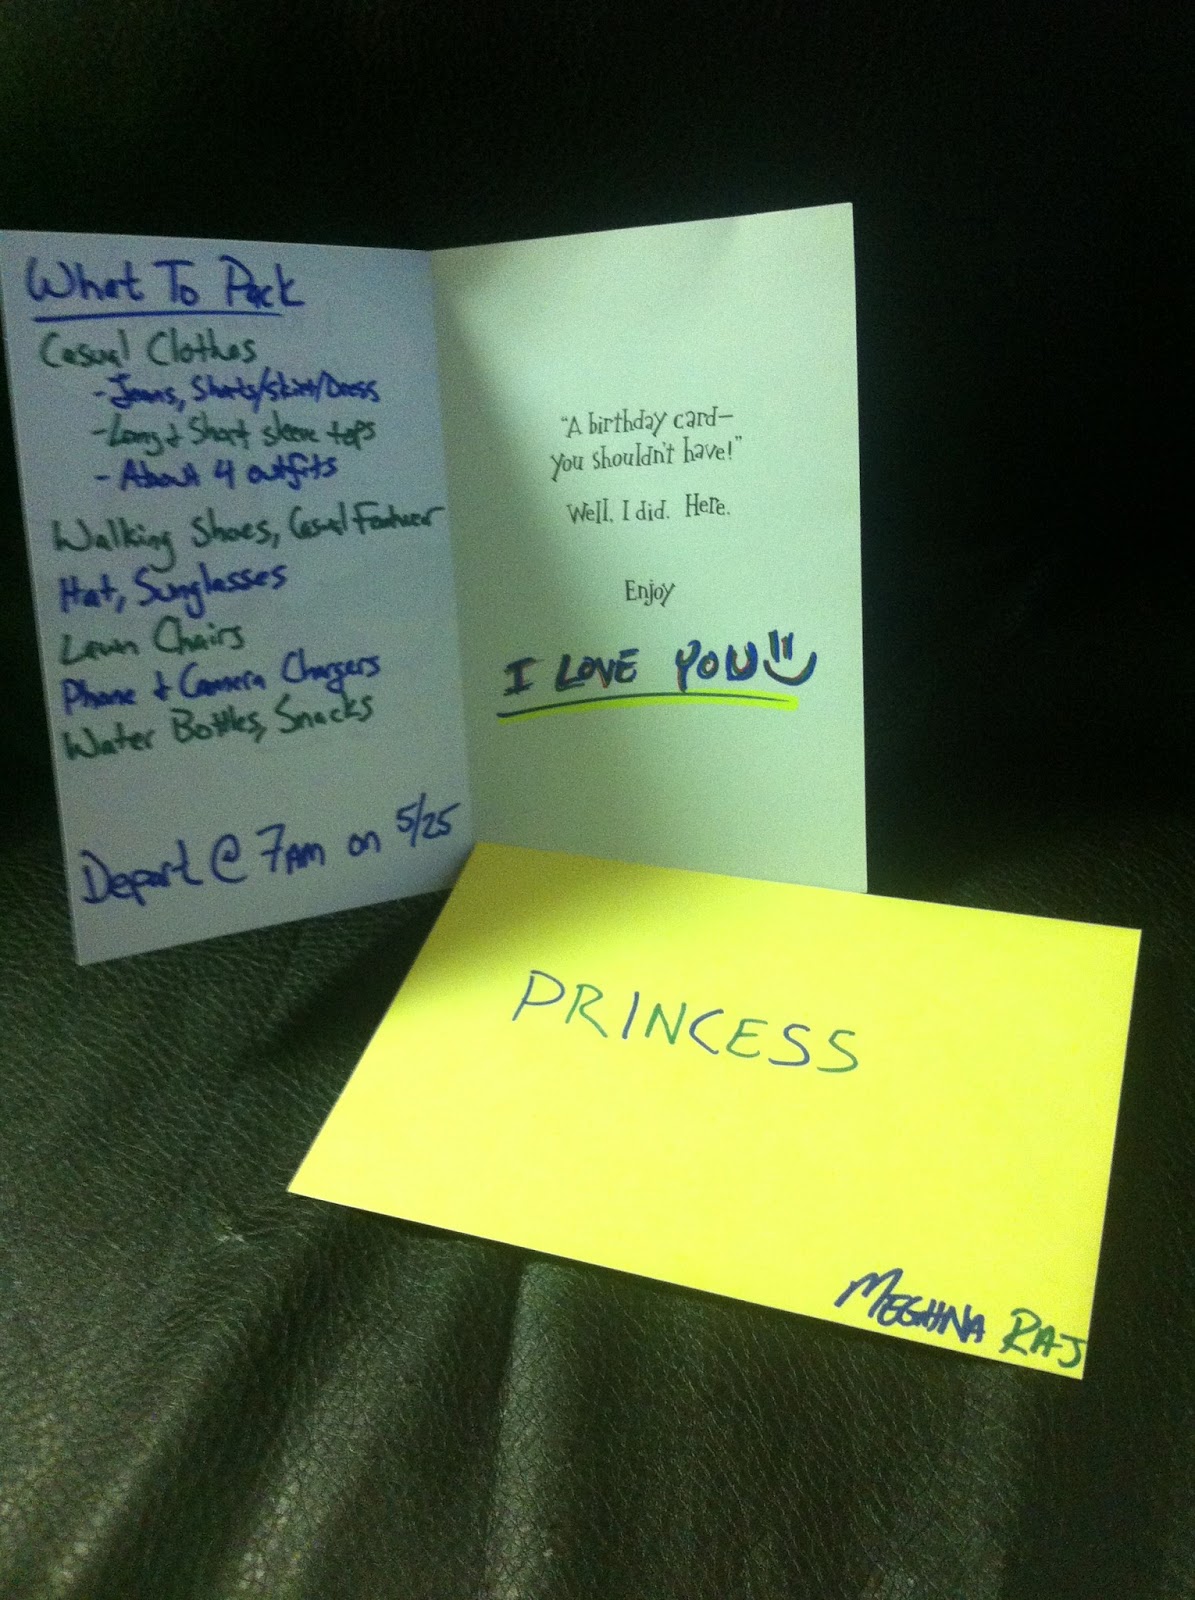 What To Pack
Casual Clothes
- Jeans, Shorts/Skirt/Dress
- Long & Short sleeve tops
- About 4 outfits
Walking Shoes, Casual Footwear
Hat, Sunglasses
Lawn Chairs
Phone & Camera Chargers
Water Bottles, Snacks
Depart @ 7AM on 5/25
"A birthday card—
you shouldn't have!"
Well, I did. Here.
Enjoy
I LOVE YOU
PRINCESS
MEGHNA RAJ